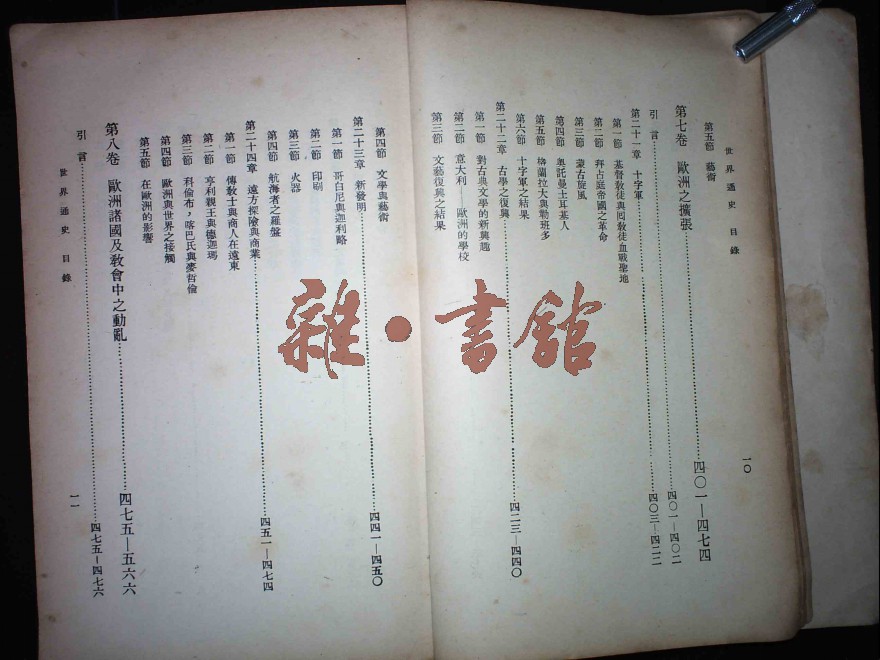 世界通史 目錄
一〇
第五節 藝術
第七卷 歐洲之擴張 四〇一—四七四
引言 四〇一—四〇二
第二十一章 十字軍 四〇三—四二二
第一節 基督敎徒與囘敎徒血戰聖地
第二節 拜占庭帝國之革命
第三節 蒙古旋風
第四節 奧託曼土耳基人
第五節 格蘭拉大與勒班多
第六節 十字軍之結果
第二十二章 古學之復興 四二三—四四〇
第一節 對古典文學的新興趣
第二節 意大利——歐洲的學校
第三節 文藝復興之結果
第四節 文學與藝術
第二十三章 新發明 四四一—四五〇
第一節 哥白尼與迦利略
第二節 印刷
第三節 火器
第四節 航海者之羅盤
第二十四章 遠方探險與商業 四五一—四七四
第一節 傳敎士與商人在遠東
第二節 亨利親王與德迦瑪
第三節 科倫布，喀巴氏與麥哲倫
第四節 歐洲與世界之接觸
第五節 在歐洲的影響
第八卷 歐洲諸國及敎會中之動亂 四七五—五六六
引言 四七五—四七六
世界通史 目錄
一一
雜·書館